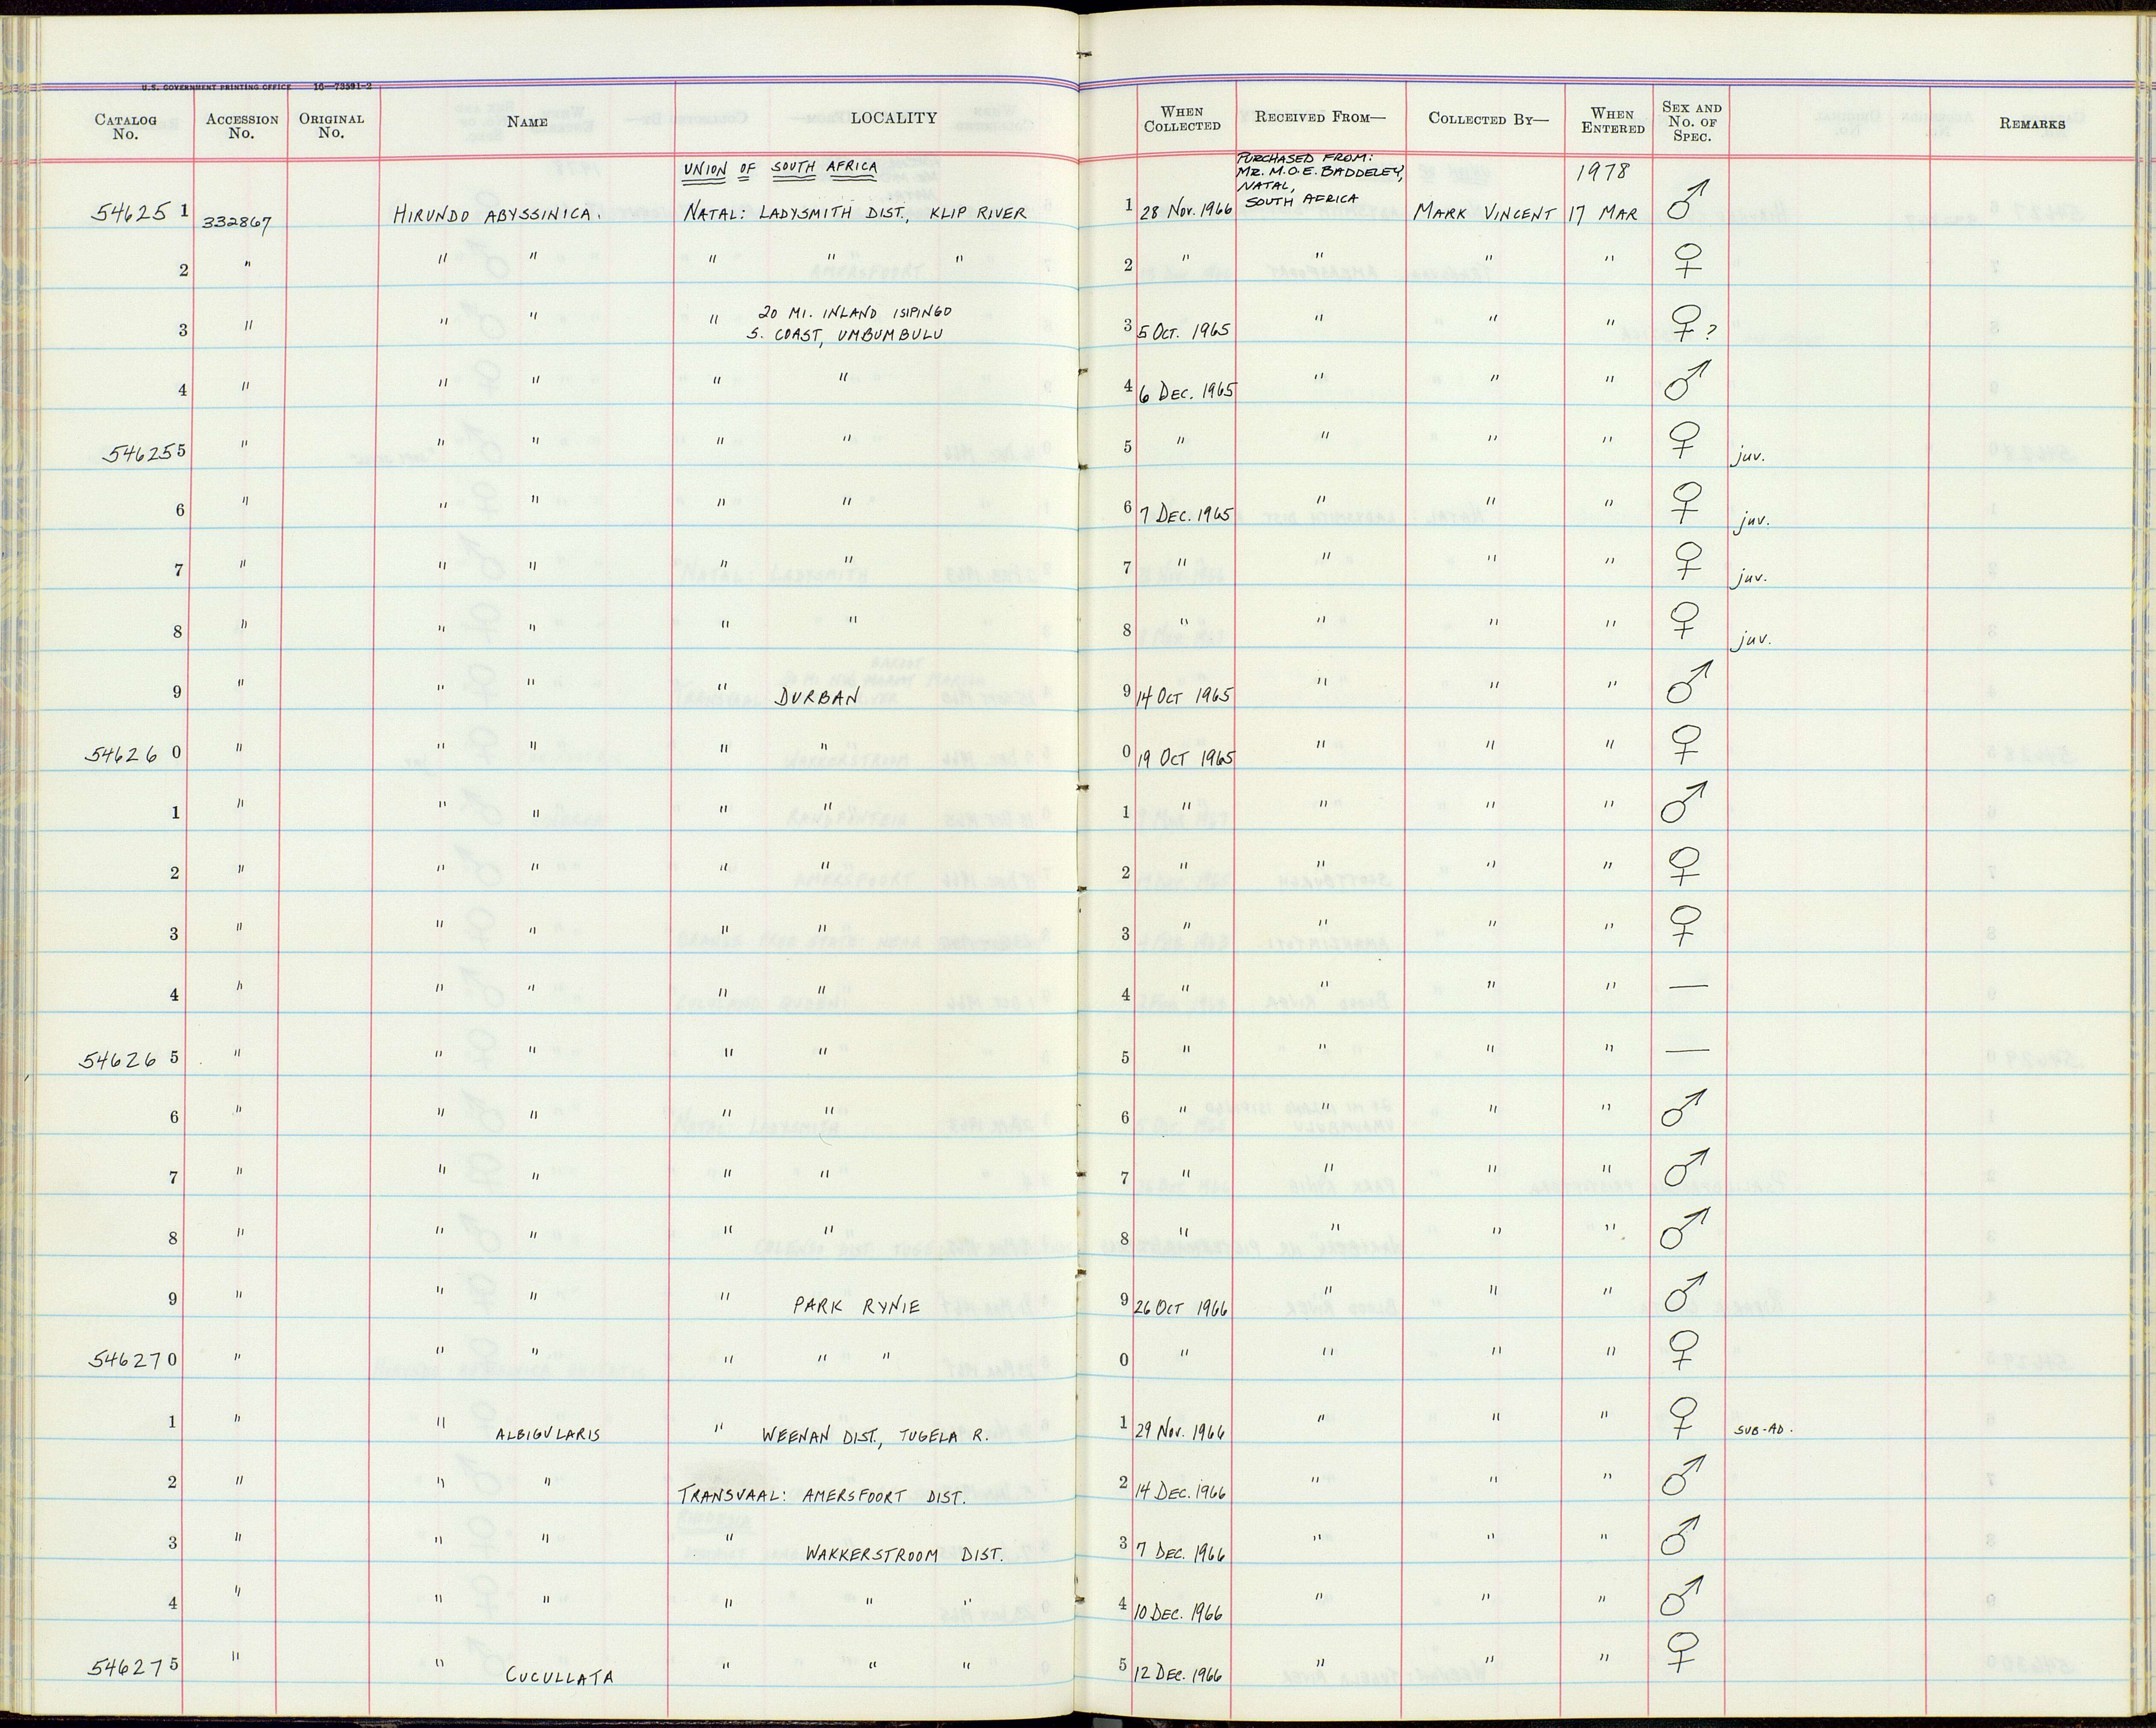 U.S. GOVERNMENT PRINTING OFFICE 16—73591-2
CATALOG No. ACCESSION No. ORIGINAL No. NAME LOCALITY WHEN COLLECTED RECEIVED FROM— COLLECTED BY— WHEN ENTERED SEX AND No. OF SPEC. REMARKS
UNION OF SOUTH AFRICA PURCHASED FROM: MR. M.O.E. BADDELEY, NATAL, SOUTH AFRICA 1978
54625 1 332867 HIRUNDO ABYSSINICA. NATAL: LADYSMITH DIST., KLIP RIVER 1 28 Nov. 1966 MARK VINCENT 17 MAR ♂
2 " " " " " " 2 " " " " ♀
3 " " " " 20 MI. INLAND ISIPINGO S. COAST, UMBUMBULU 3 5 OCT. 1965 " " " ♀?
4 " " " " " 4 6 DEC. 1965 " " " ♂
54625 5 " " " " " 5 " " " " ♀ juv.
6 " " " " " 6 7 DEC. 1965 " " " ♀ juv.
7 " " " " " 7 " " " " ♀ juv.
8 " " " " " 8 " " " " ♀ juv.
9 " " " " DURBAN 9 14 OCT 1965 " " " ♂
54626 0 " " " " " 0 19 OCT 1965 " " " ♀
1 " " " " " 1 " " " " ♂
2 " " " " " 2 " " " " ♀
3 " " " " " 3 " " " " ♀
4 " " " " " 4 " " " " —
54626 5 " " " " " 5 " " " " —
6 " " " " " 6 " " " " ♂
7 " " " " " 7 " " " " ♂
8 " " " " " 8 " " " " ♂
9 " " " " PARK RYNIE 9 26 OCT 1966 " " " ♂
54627 0 " " " " " " 0 " " " " ♀
1 " " ALBIGULARIS " WEENAN DIST., TUGELA R. 1 29 Nov. 1966 " " " ♀ SUB-AD.
2 " " " TRANSVAAL: AMERSFOORT DIST. 2 14 DEC. 1966 " " " ♂
3 " " " " WAKKERSTROOM DIST. 3 7 DEC. 1966 " " " ♂
4 " " " " " " 4 10 DEC. 1966 " " " ♂
54627 5 " " CUCULLATA " " " 5 12 DEC. 1966 " " " ♀